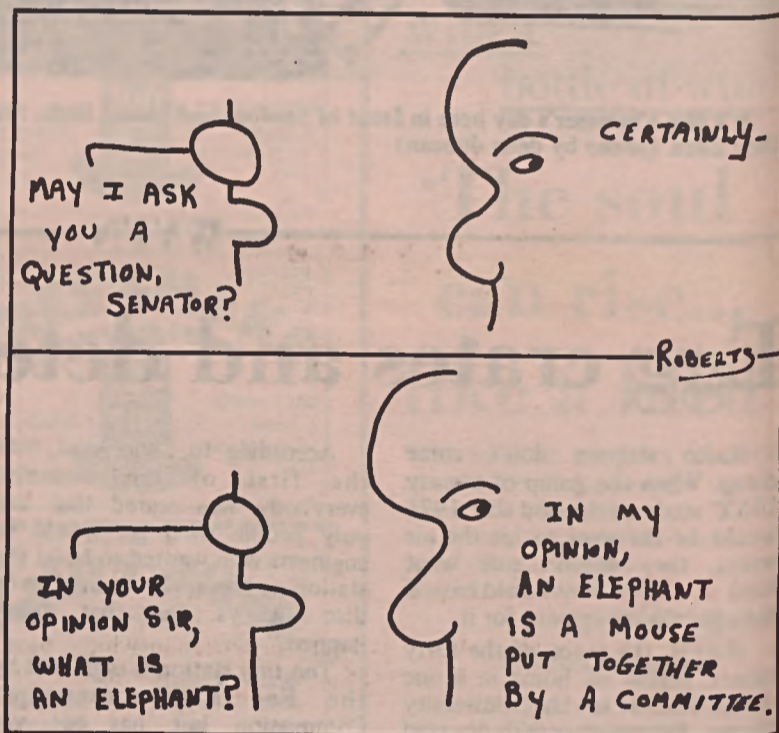 MAY I ASK
YOU A
QUESTION,
SENATOR?
CERTAINLY-
ROBERTS
IN YOUR
OPINION SIR,
WHAT IS
AN ELEPHANT?
IN MY
OPINION,
AN ELEPHANT
IS A MOUSE
PUT TOGETHER
BY A COMMITTEE.